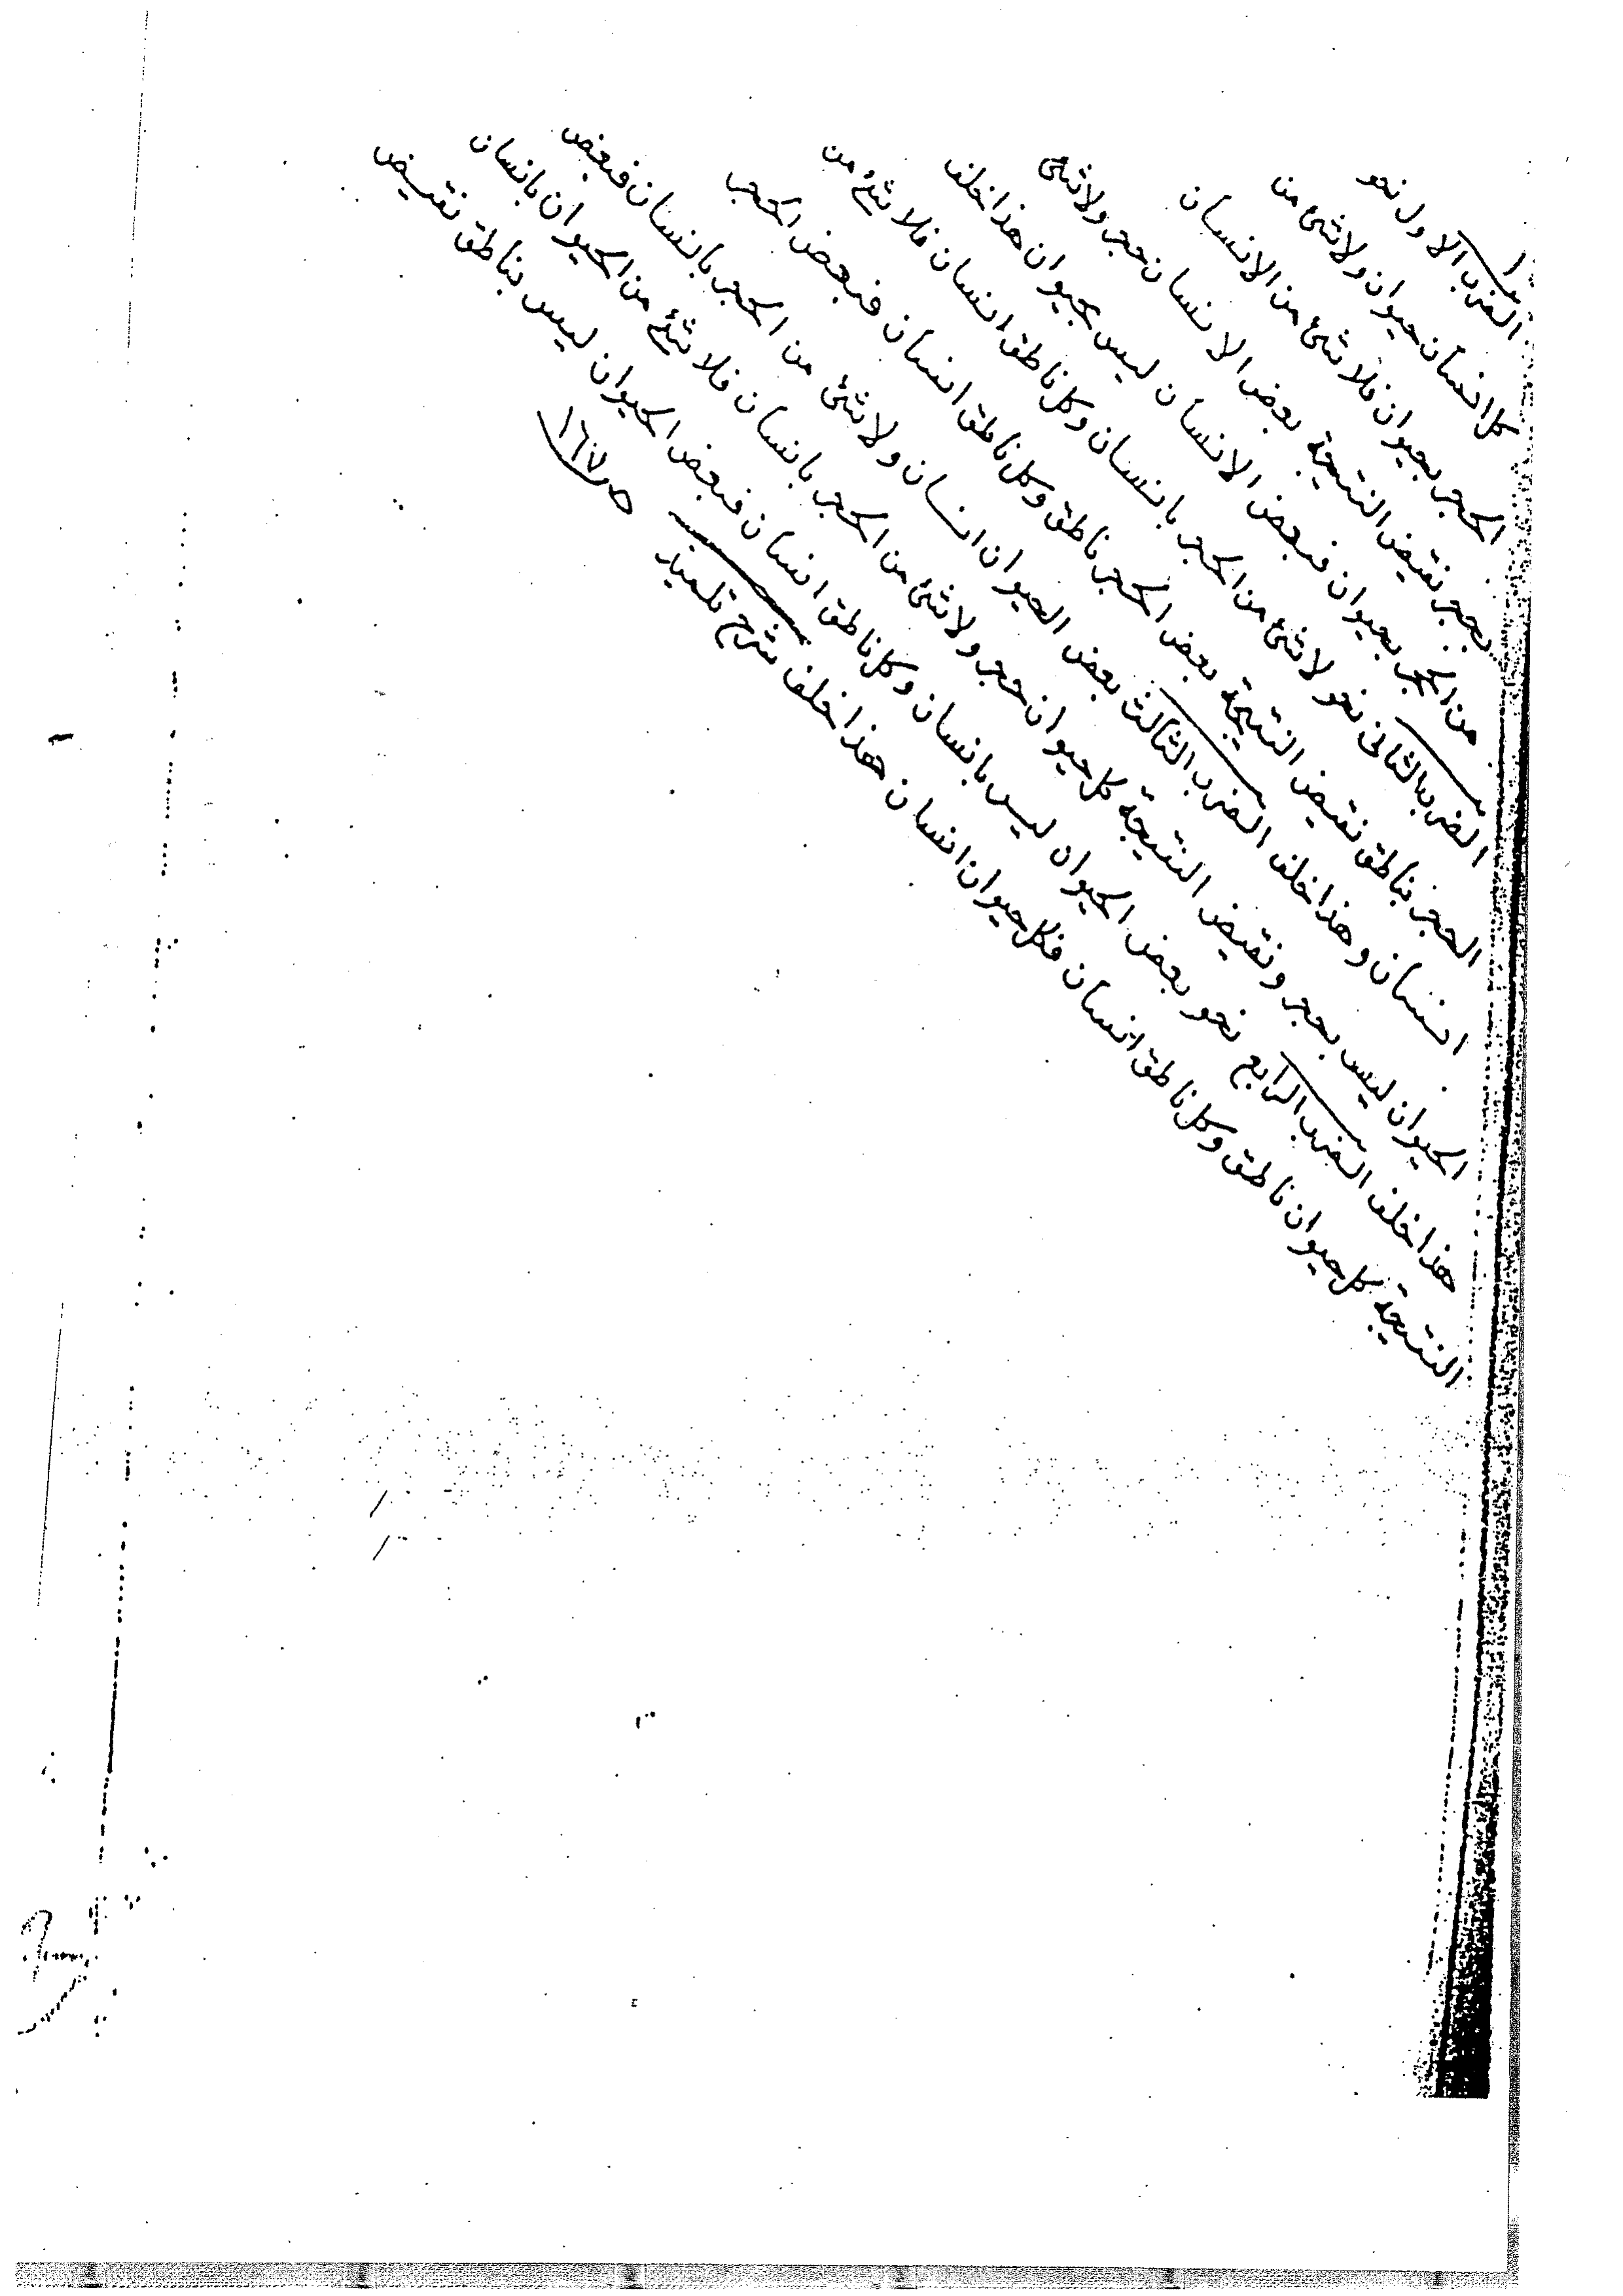 الضرب الاول نحو
كل انسان حيوان ولا شئ من
الحجر بحيوان فلا شئ من الانسان
بحجر نقيض النتيجة بعض الانسان حجر ولا شئ
من الحجر بحيوان فبعض الانسان ليس بحيوان هذا خلف
الضرب الثانى نحو لا شئ من الحجر بانسان وكل ناطق انسان فلا شئ من
الحجر بناطق نقيض النتيجة بعض الحجر ناطق وكل ناطق انسان فبعض الحجر
انسان وهذا خلف الضرب الثالث بعض الحيوان انسان ولا شئ من الحجر بانسان فبعض
الحيوان ليس بحجر ونقيض النتيجة كل حيوان حجر ولا شئ من الحجر بانسان فلا شئ من الحيوان بانسان
هذا خلف الضرب الرابع نحو بعض الحيوان ليس بانسان وكل ناطق انسان فبعض الحيوان ليس بناطق نقيض
النتيجة كل حيوان ناطق وكل ناطق انسان فكل حيوان انسان هذا خلف شرح تلميذ ص ١٦٧